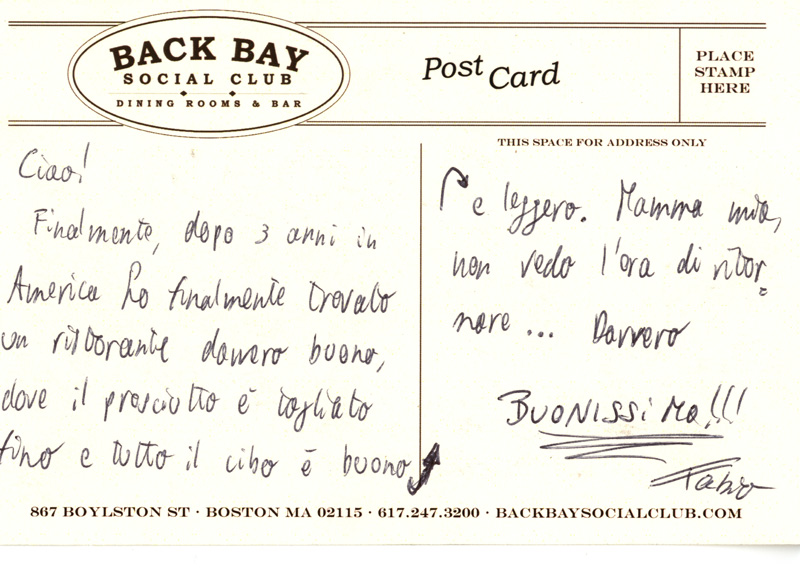 BACK BAY
SOCIAL CLUB
DINING ROOMS & BAR
Post Card
PLACE
STAMP
HERE
THIS SPACE FOR ADDRESS ONLY
Ciao!
Finalmente, dopo 3 anni in
America ho finalmente trovato
un ristorante davvero buono,
dove il prosciutto è tagliato
fino e tutto il cibo è buono
e leggero. Mamma mia,
non vedo l'ora di ritor-
nare ... Davvero
BUONISSIMO!!!
Fabio
867 BOYLSTON ST · BOSTON MA 02115 · 617.247.3200 · BACKBAYSOCIALCLUB.COM